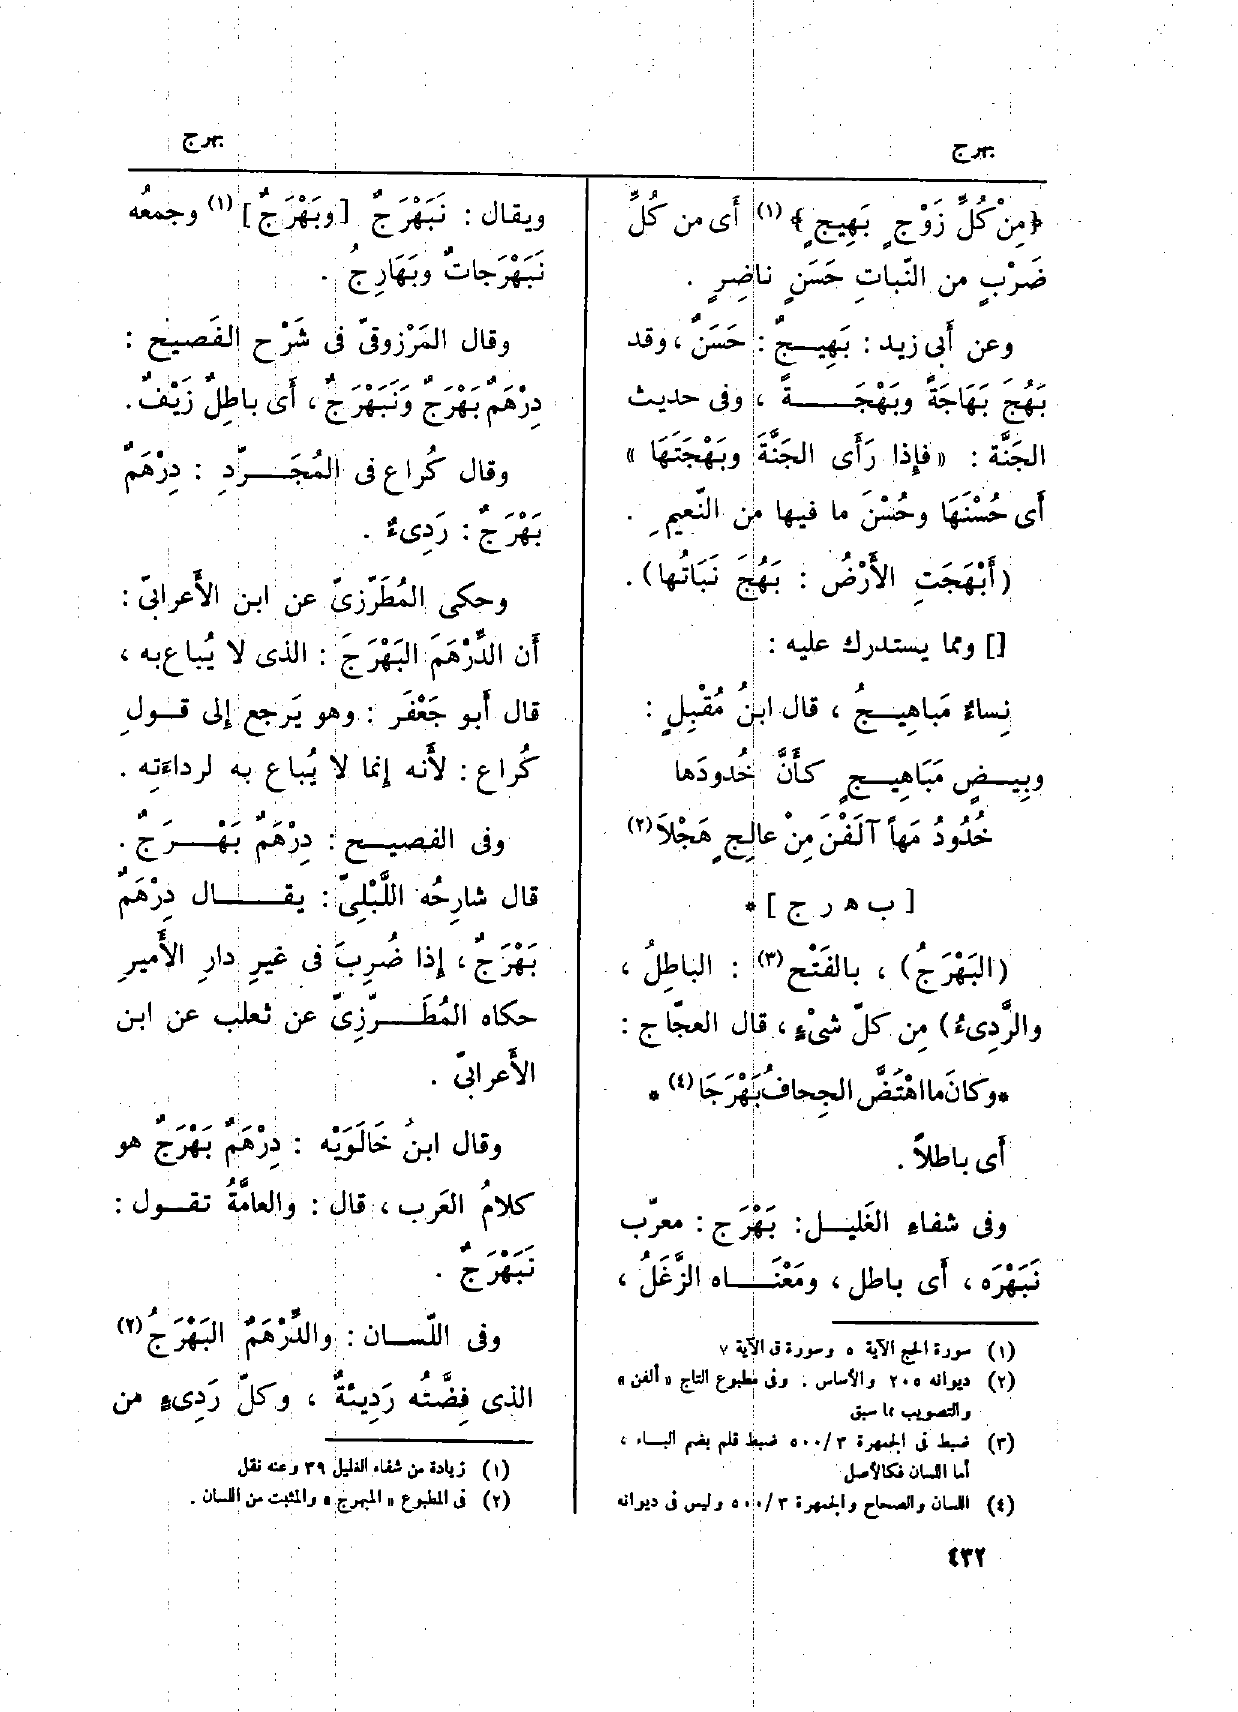 بهرج
بهرج
﴿مِنْ كُلِّ زَوْجٍ بَهِيجٍ﴾(١) أَى من كُلِّ
ضَرْبٍ من النَّباتِ حَسَنٍ ناضِرٍ .
وعن أَبى زيد : بَهِيـجٌ : حَسَنٌ ، وقد
بَهُجَ بَهَاجَةً وبَهْجَــةً ، وفى حديث
الجَنَّة : « فإِذا رَأَى الجَنَّةَ وبَهْجَتَهَا »
أَى حُسْنَهَا وحُسْنَ ما فيها من النَّعيمِ .
(أَبْهَجَتِ الأَرْضُ : بَهُجَ نَبَاتُها) .
[] ومما يستدرك عليه :
نِساءٌ مَباهِيـجُ ، قال ابنُ مُقْبِلٍ :
وبِيـضٍ مَبَاهِيـجٍ كأَنَّ خُدودَها
خُدُودُ مَهاً آلَفْنَ مِنْ عالِجٍ هَجْلاَ(٢)
[ ب ه ر ج ] *
(البَهْرَجُ) ، بالفَتْح(٣) : الباطِلُ ،
والرَّدِىءُ) مِن كلّ شىْءٍ ، قال العجّاج :
*وكانَ ما اهْتَضَّ الجِحافُ بَهْرَجَا(٤) *
أَى باطلاً .
وفى شفاءِ الغَليـل : بَهْرَج : معرّب
نَبَهْرَه ، أَى باطل ، ومَعْنَــاه الزَّغَلُ ،
(١) سورة الحج الآية ٥ وسورة ق الآية ٧
(٢) ديوانه ٢٠٥ والأساس . وفى مطبوع التاج « ألفن »
والتصويب مما سبق
(٣) ضبط فى الجمهرة ٣/٥٠٠ ضبط قلم بضم البـاء ،
أما اللسان فكالأصل
(٤) اللسان والصحاح والجمهرة ٣/٥٠٠ وليس فى ديوانه
ويقال : نَبَهْرَجٌ [وبَهْرَجٌ](١) وجمعُه
نَبَهْرَجاتٌ وبَهَارِجُ .
وقال المَرْزوقىّ فى شَرْح الفَصيح :
دِرْهَمٌ بَهْرَجٌ ونَبَهْرَجٌ ، أَى باطلٌ زَيْفٌ .
وقال كُراع فى المُجَـرَّدِ : دِرْهَمٌ
بَهْرَجٌ : رَدِىءٌ .
وحكى المُطَرّزِىّ عن ابن الأَعرابىّ :
أَن الدِّرْهَمَ البَهْرَجَ : الذى لا يُباع به ،
قال أَبو جَعْفَر : وهو يَرجع إِلى قـولِ
كُراع : لأَنه إِنما لا يُباع به لرداءَتِه .
وفى الفصيـح : دِرْهَمٌ بَهْـرَجٌ .
قال شارِحُه اللَّبْلِىّ : يقــال دِرْهَمٌ
بَهْرَجٌ ، إِذا ضُرِبَ فى غيرِ دارِ الأَميرِ
حكاه المُطَـرّزِىّ عن ثعلب عن ابن
الأَعرابىّ .
وقال ابنُ خَالَوَيْه : دِرْهَمٌ بَهْرَجٌ هو
كلامُ العَرب ، قال : والعامَّةُ تقـول :
نَبَهْرَجٌ .
وفى اللّسـان : والدِّرْهَمُ البَهْرَجُ(٢)
الذى فِضَّتُه رَدِيئةٌ ، وكلّ رَدِىءٍ من
(١) زيادة من شفاء الغليل ٣٩ وعنه نقل
(٢) فى المطبوع « المبهرج » والمثبت من اللسان .
٤٣٢